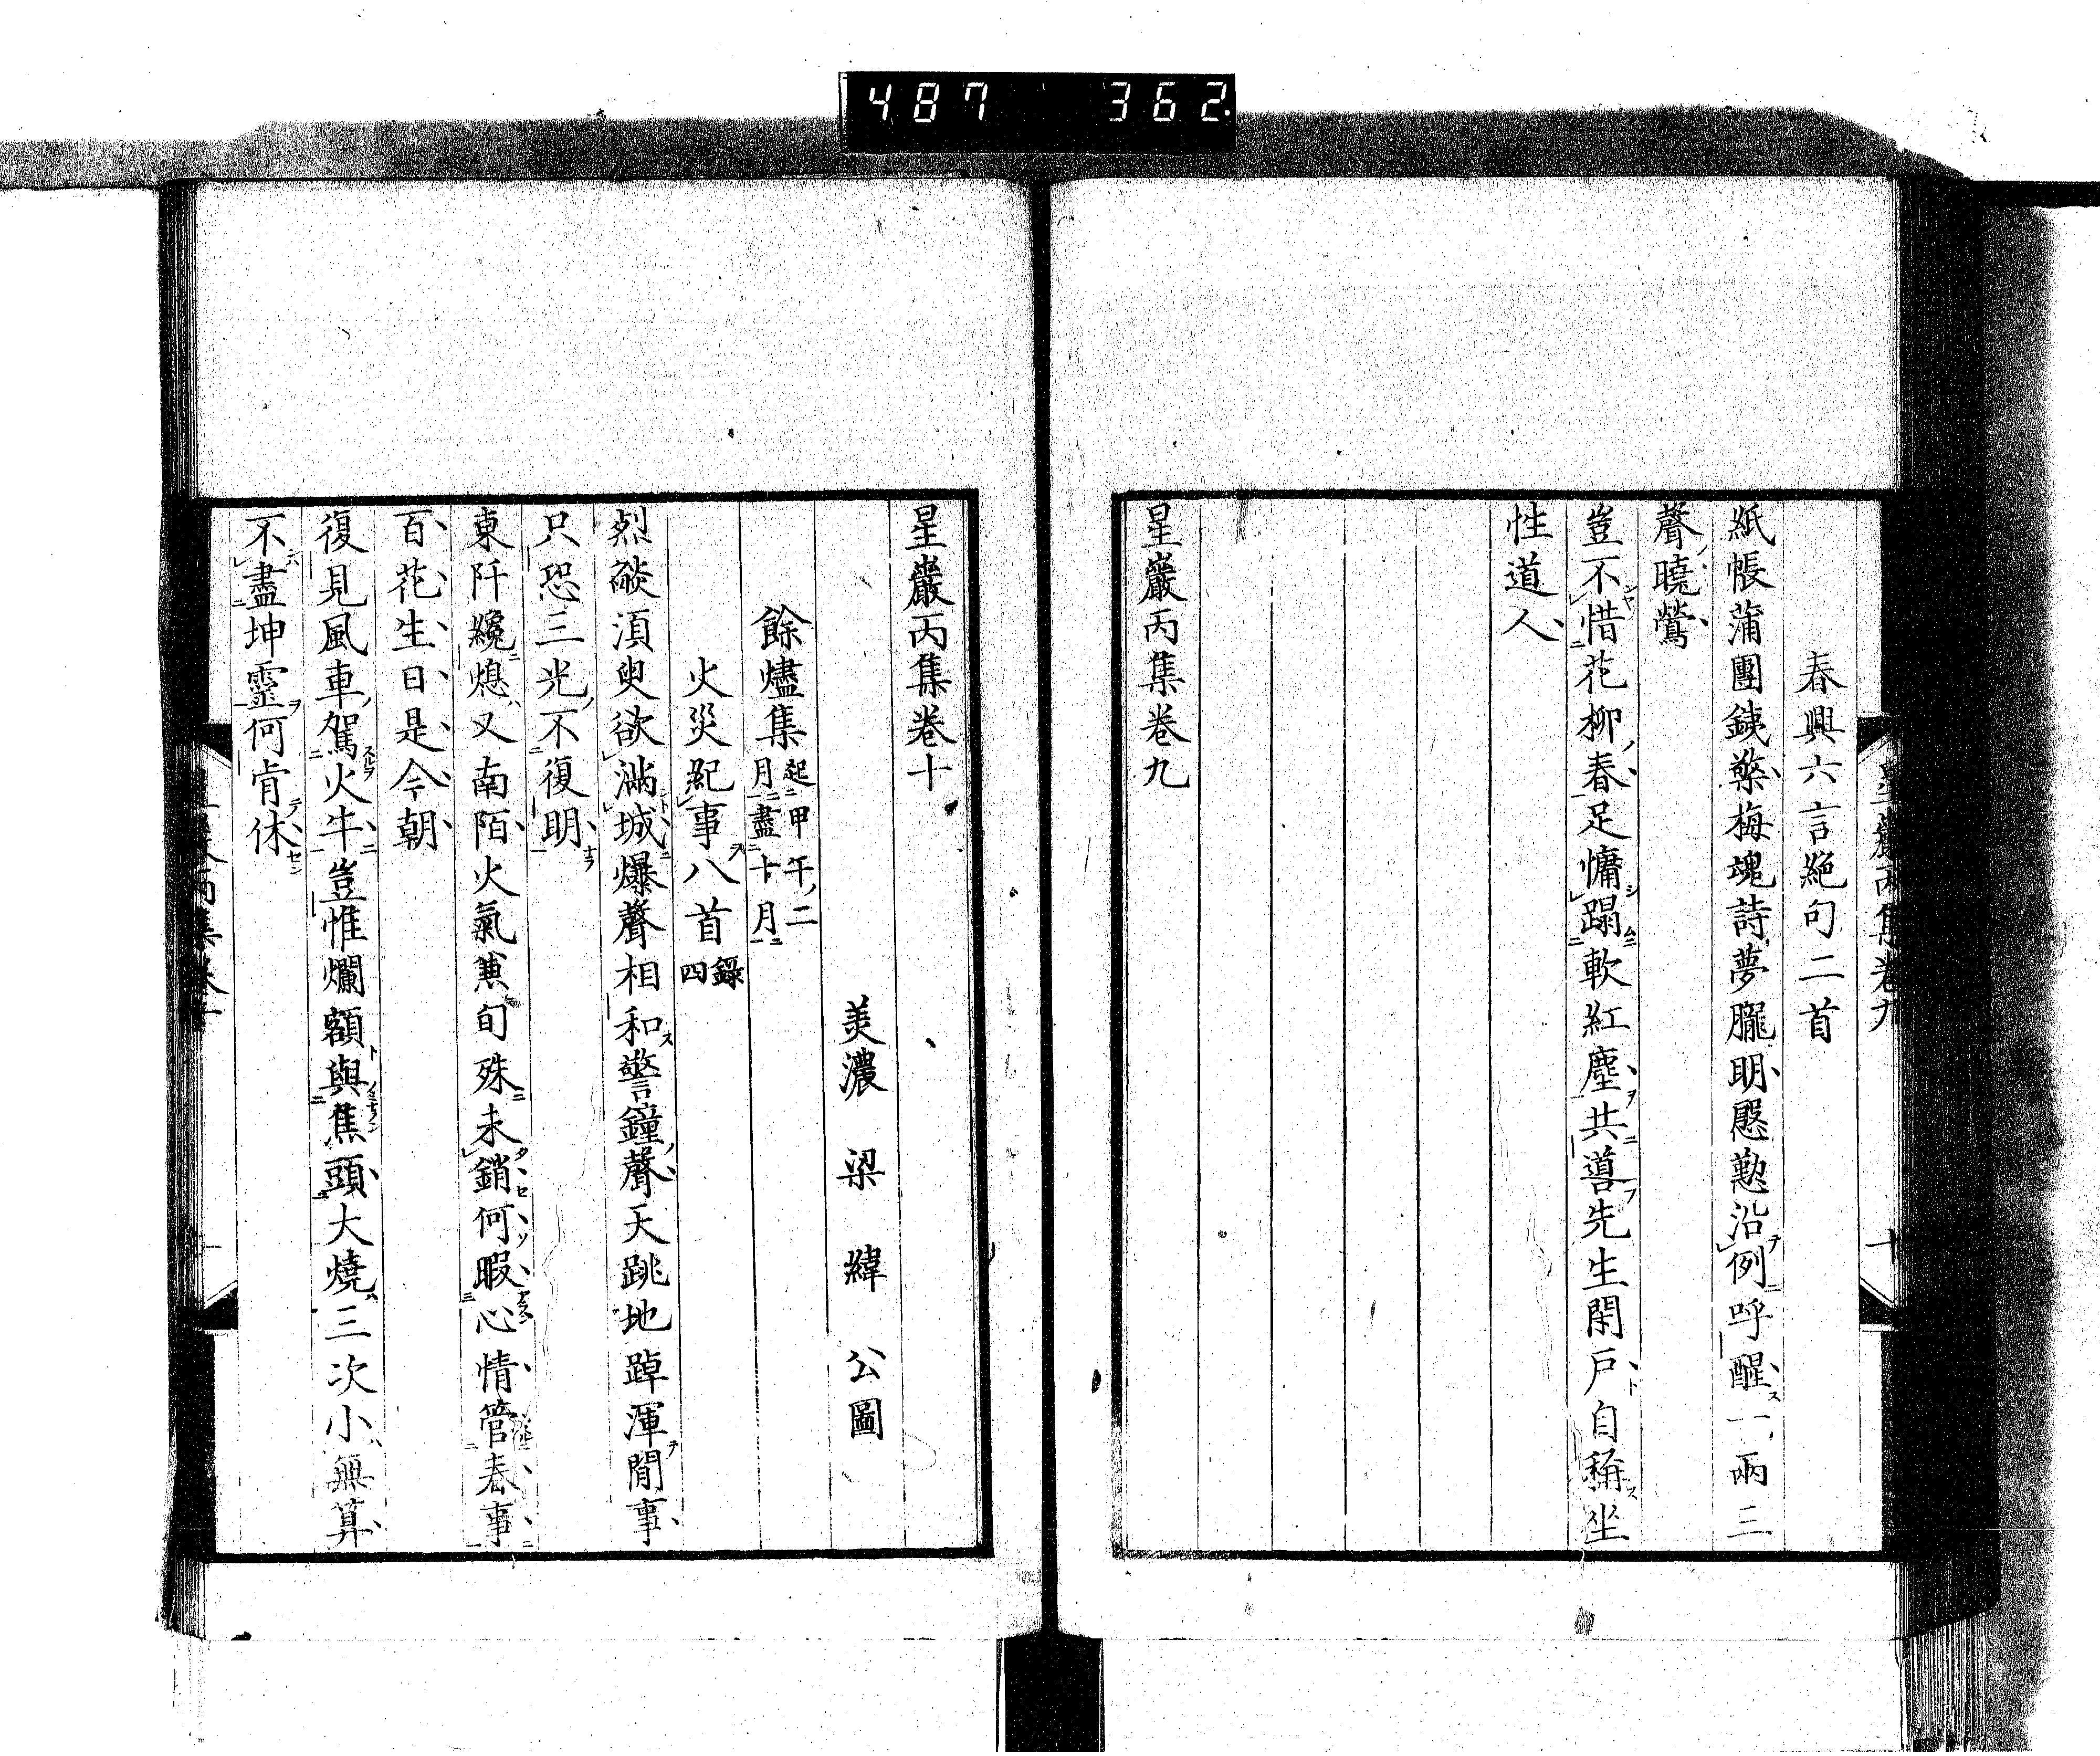 487 362
星巖丙集卷九 十
春興六言絶句二首
紙帳蒲團銕檠梅魂詩夢朧明慇懃沿例呼醒一兩三
聲曉鶯
豈不惜花柳春足慵蹋軟紅塵共噵先生閑戸自稱坐
性道人
星巖丙集卷九
星巖丙集卷十
美濃 梁 緯 公圖
餘燼集起甲午ノ二月盡十月
火災紀事八首錄四
烈燄湏臾欲滿城爆聲相和警鐘聲天跳地踔渾閒事
只恐三光不復明
東阡纔熄又南陌火氣兼旬殊未銷何暇心情管春事
百花生日是今朝
復見風車駕火牛豈惟爛額與焦頭大燒三次小無算
不盡坤靈何肯休